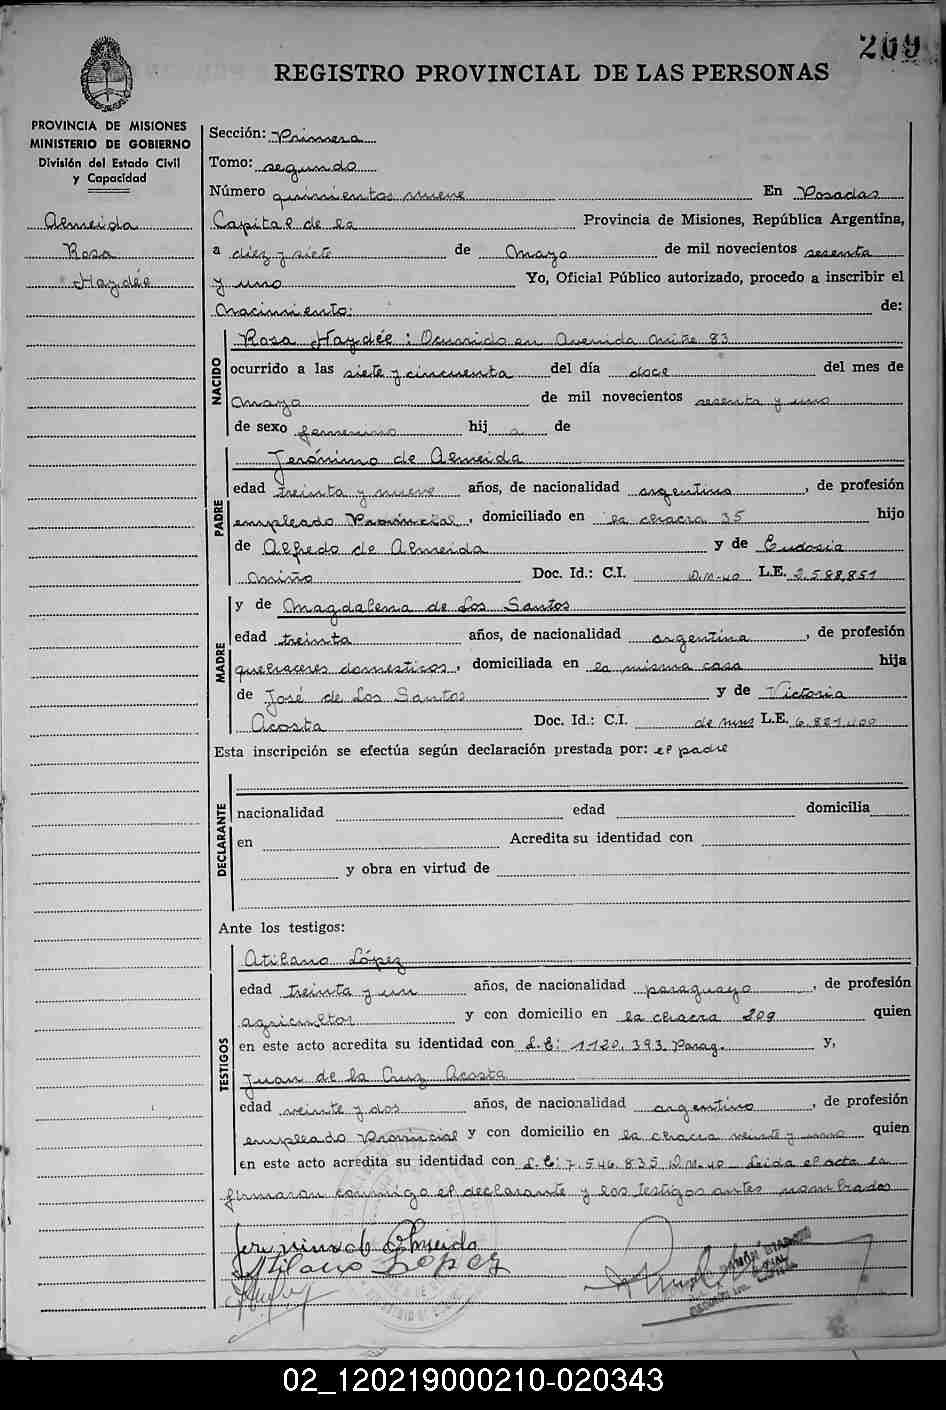 209
REGISTRO PROVINCIAL DE LAS PERSONAS
PROVINCIA DE MISIONES
MINISTERIO DE GOBIERNO
División del Estado Civil
y Capacidad
Almeida
Rosa
Haydée
Sección: Primera
Tomo: segundo
Número quinientos nueve En Posadas
Capital de la Provincia de Misiones, República Argentina,
a diez y siete de Mayo de mil novecientos sesenta
y uno Yo, Oficial Público autorizado, procedo a inscribir el
Nacimiento: de:
NACIDO
Rosa Haydée : Ocurrido en Avenida Mitre 83
ocurrido a las siete y cincuenta del día doce del mes de
Mayo de mil novecientos sesenta y uno
de sexo femenino hij a de
PADRE
Jerónimo de Almeida
edad treinta y nueve años, de nacionalidad argentino, de profesión
empleado Provincial, domiciliado en la chacra 35 hijo
de Alfredo de Almeida y de Eudosia
Miño Doc. Id.: C.I. D.M.40 L.E. 2.588.851
MADRE
y de Magdalena de Los Santos
edad treinta años, de nacionalidad argentina, de profesión
quehaceres domesticos, domiciliada en la misma casa hija
de José de Los Santos y de Victoria
Acosta Doc. Id.: C.I. de mns L.E. 6.881.400
Esta inscripción se efectúa según declaración prestada por: el padre
DECLARANTE
nacionalidad edad domicilia
en Acredita su identidad con
y obra en virtud de
Ante los testigos:
TESTIGOS
Atilano López
edad treinta y un años, de nacionalidad paraguayo, de profesión
agricultor y con domicilio en la chacra 209 quien
en este acto acredita su identidad con L.E: 1120.393 Parag. y,
Juan de la Cruz Acosta
edad veinte y dos años, de nacionalidad argentino, de profesión
empleado Provincial y con domicilio en la chacra veinte y uno quien
en este acto acredita su identidad con L.E: 7.546.835 D.M.40 Leida el acta la
firmaron conmigo el declarante y los testigos antes nombrados
Jeronimo de Almeida
Atilano Lopez
02_120219000210-020343